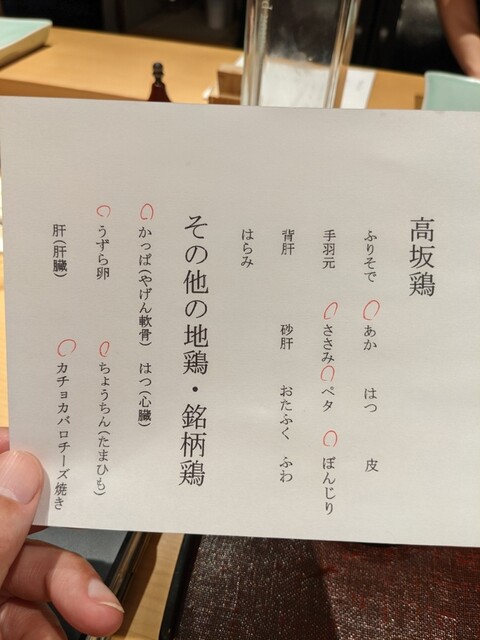 高坂鶏
ふりそで あか はつ 皮
手羽元 ささみ ペタ ぼんじり
背肝 砂肝 おたふく ふわ
はらみ
その他の地鶏・銘柄鶏
かっぱ(やげん軟骨) はつ(心臓)
うずら卵 ちょうちん(たまひも)
肝(肝臓) カチョカバロチーズ焼き